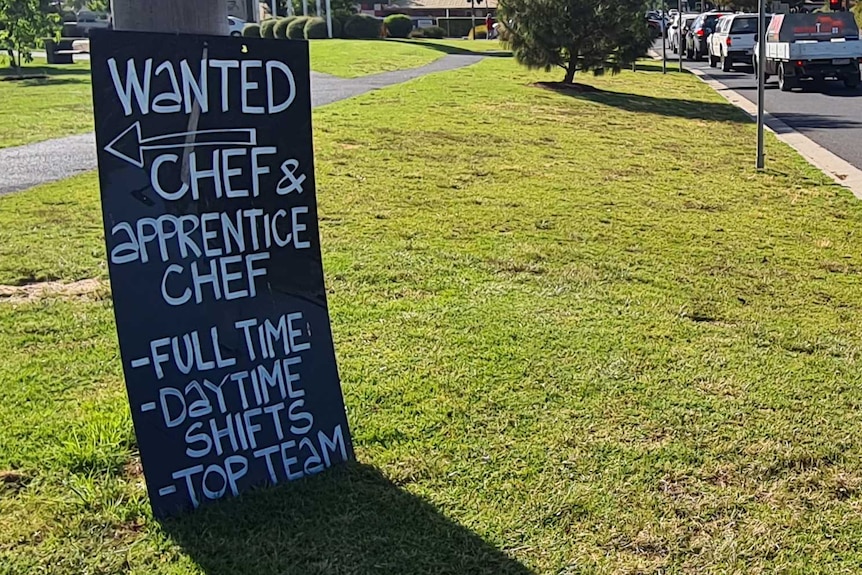 WANTED
CHEF &
APPRENTICE
CHEF
-FULL TIME
-DAYTIME
SHIFTS
-TOP TEAM